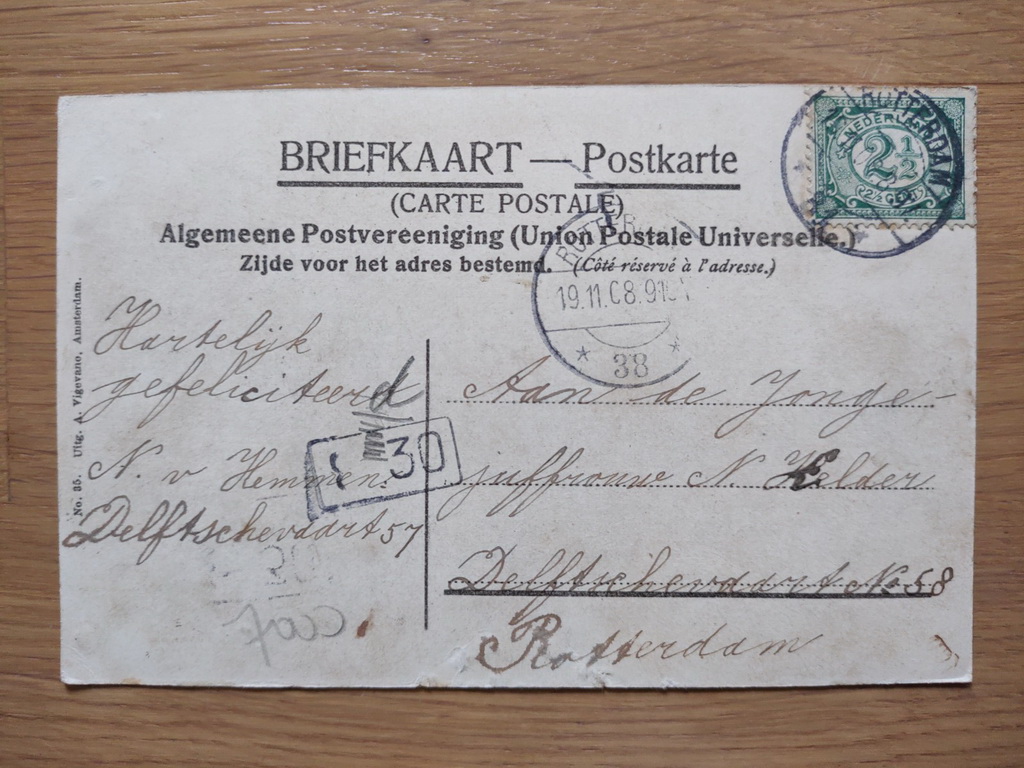 BRIEFKAART — Postkarte
(CARTE POSTALE)
Algemeene Postvereeniging (Union Postale Universelle.)
Zijde voor het adres bestemd. (Côté réservé à l'adresse.)
ROTTERDAM
NEDERLAND
2½
2½ CENT
ROTTER
19.11.08.9
38
No. 35. Uitg. A. Vigevano, Amsterdam.
Hartelijk
gefeliciteerd
N. v Hemmen.
Delftschevaart 57
30
Aan de Jonge-
juffrouw N. Helder
Delftschevaart No 58
Rotterdam